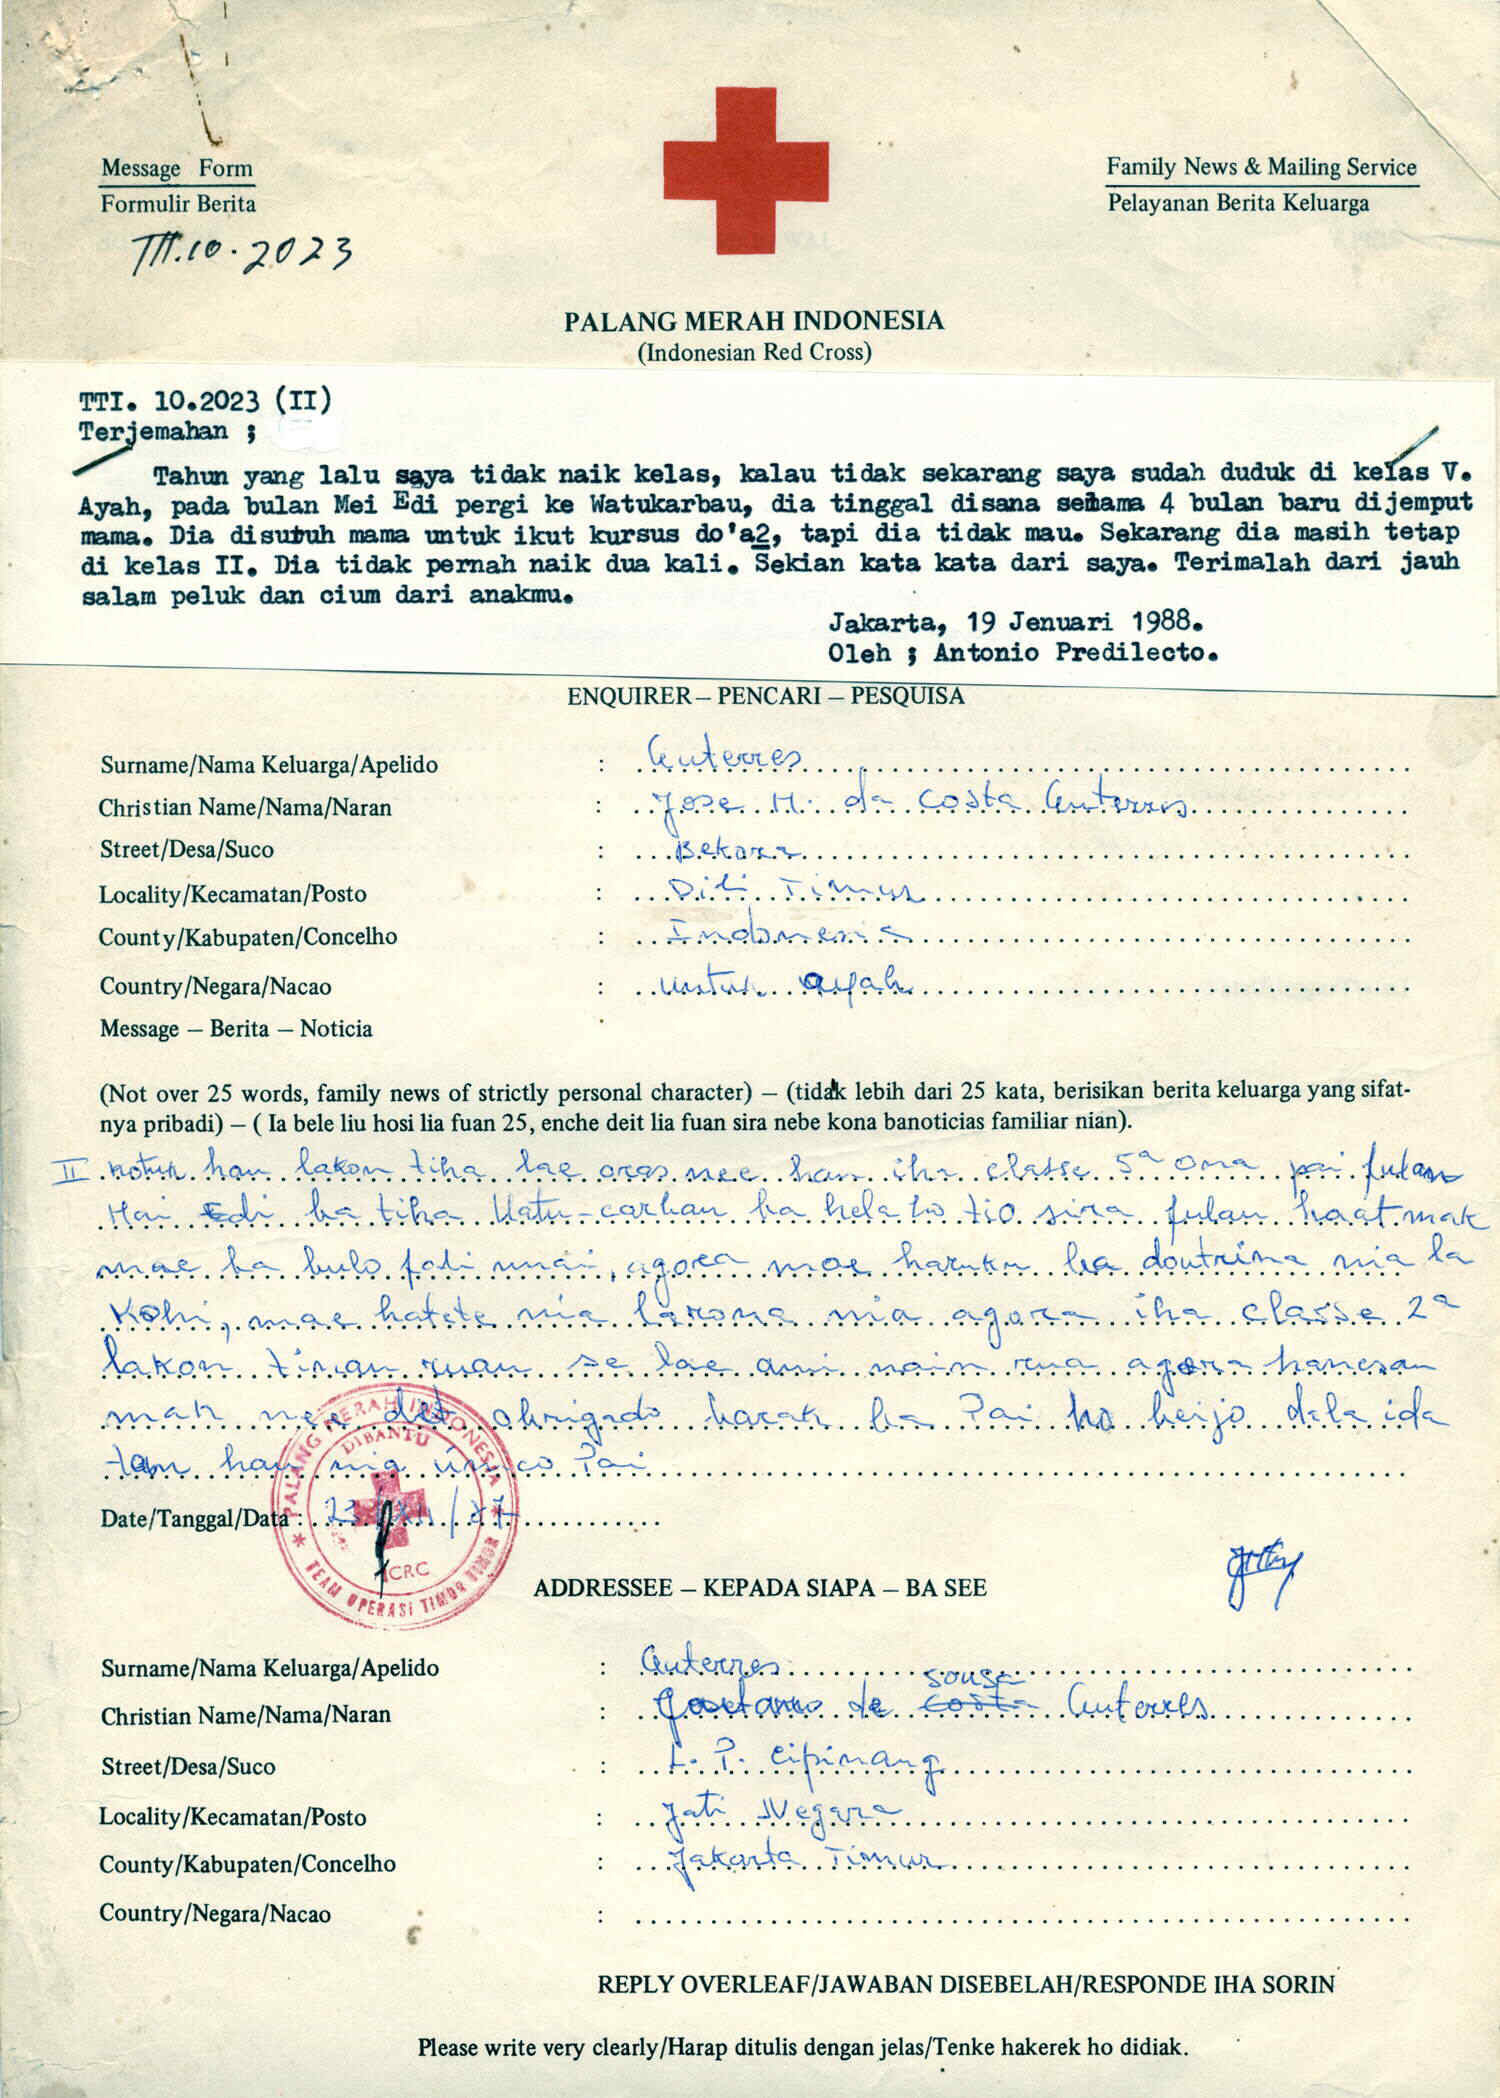 Message Form
Formulir Berita
TTI.10.2023
Family News & Mailing Service
Pelayanan Berita Keluarga
PALANG MERAH INDONESIA
(Indonesian Red Cross)
TTI. 10.2023 (II)
Terjemahan ;
Tahun yang lalu saya tidak naik kelas, kalau tidak sekarang saya sudah duduk di kelas V.
Ayah, pada bulan Mei Edi pergi ke Watukarbau, dia tinggal disana selama 4 bulan baru dijemput
mama. Dia disuruh mama untuk ikut kursus do'a2, tapi dia tidak mau. Sekarang dia masih tetap
di kelas II. Dia tidak pernah naik dua kali. Sekian kata kata dari saya. Terimalah dari jauh
salam peluk dan cium dari anakmu.
Jakarta, 19 Jenuari 1988.
Oleh ; Antonio Predilecto.
ENQUIRER – PENCARI – PESQUISA
Surname/Nama Keluarga/Apelido : Guterres
Christian Name/Nama/Naran : Jose M. da Costa Guterres
Street/Desa/Suco : Bekora
Locality/Kecamatan/Posto : Dili Timur
County/Kabupaten/Concelho : Indonesia
Country/Negara/Nacao : untuk ayah
Message – Berita – Noticia
(Not over 25 words, family news of strictly personal character) – (tidak lebih dari 25 kata, berisikan berita keluarga yang sifat-
nya pribadi) – ( Ia bele liu hosi lia fuan 25, enche deit lia fuan sira nebe kona banoticias familiar nian).
II hau lakon tiha lae oras nee hau iha classe 5ª ona pai fulan
Mai Edi ba tiha Uatu-carbau ba hela ho tio sira fulan haat mak
mae ba fali mai, agora mae haruka ba doutrina nia la
kohi, mae hatete nia larona nia agora iha classe 2ª
lakon tinan ruan se lae ami nain rua agora hanesan
mak nee det obrigado barak ba Pai ho beijo dala ida
tan hau nia único Pai
Date/Tanggal/Data : 23/XII/87
PALANG MERAH INDONESIA
DIBANTU
ICRC
TEAM OPERASI TIMOR TIMUR
ADDRESSEE – KEPADA SIAPA – BA SEE
Surname/Nama Keluarga/Apelido : Guterres
sousa
Christian Name/Nama/Naran : Gaetano de costa Guterres
Street/Desa/Suco : L. P. Cipinang
Locality/Kecamatan/Posto : Jati Negara
County/Kabupaten/Concelho : Jakarta Timur
Country/Negara/Nacao :
REPLY OVERLEAF/JAWABAN DISEBELAH/RESPONDE IHA SORIN
Please write very clearly/Harap ditulis dengan jelas/Tenke hakerek ho didiak.